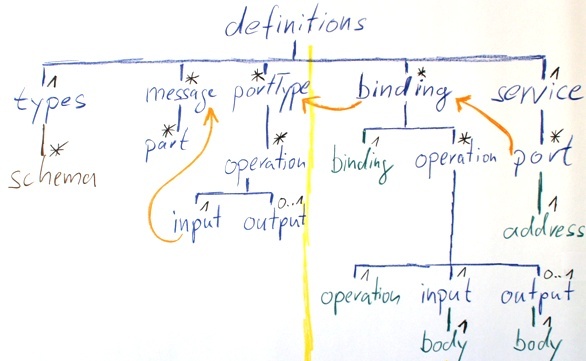 definitions
1 * * * 1
types message portType binding service
* * * 1 * *
schema part operation binding operation port
1 0..1 1
input output address
1 1 0..1
operation input output
1 1
body body